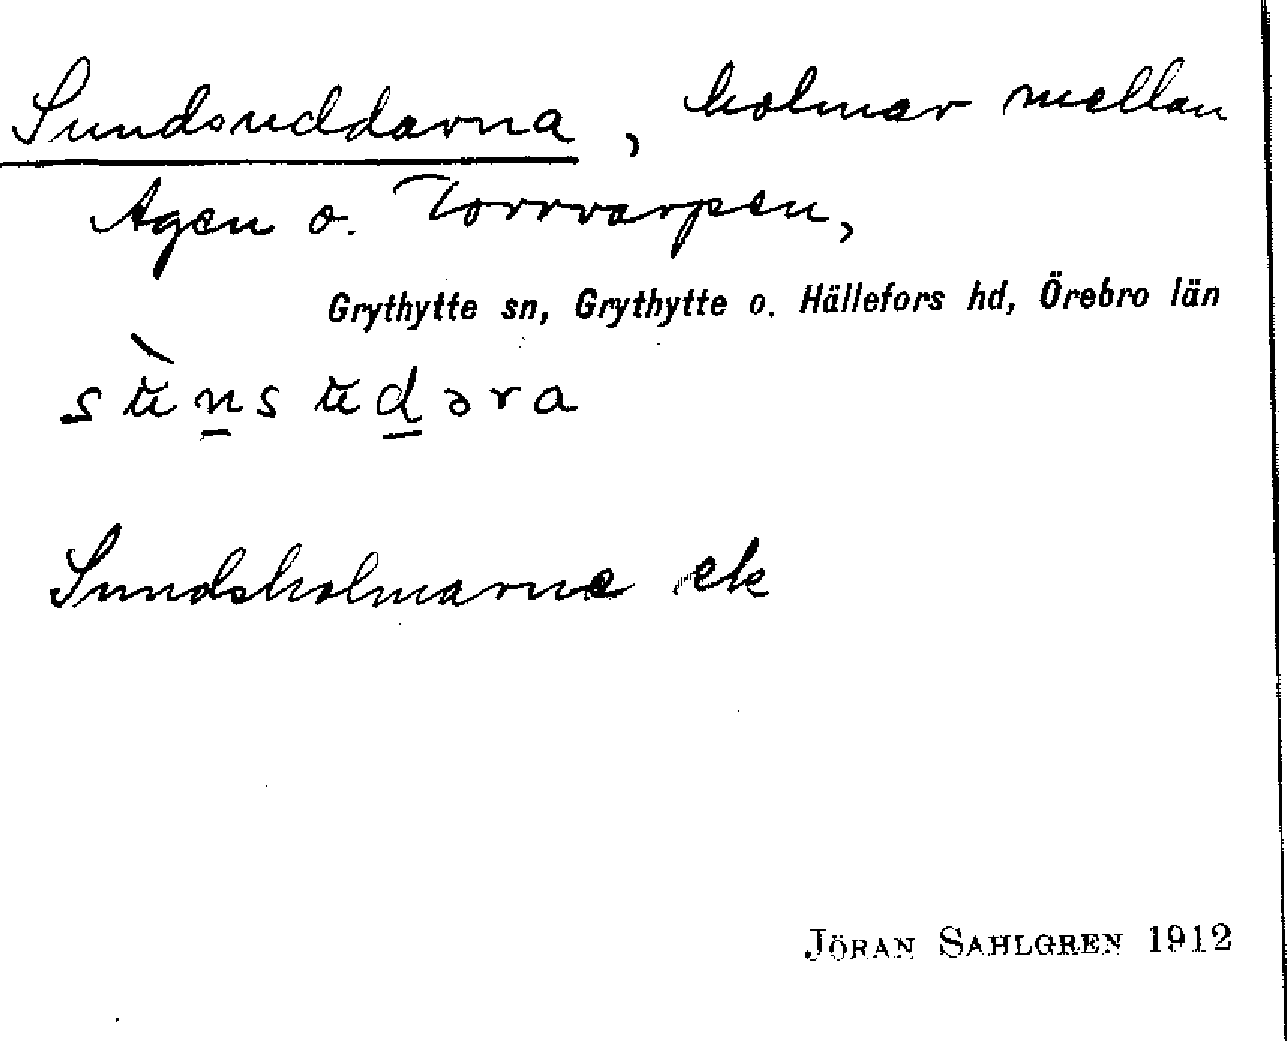 Sundsuddarna, holmar mellan
Agen o. Torrvarpen,
Grythytte sn, Grythytte o. Hällefors hd, Örebro län
sùn̲s ud̲əra
Sundsholmarne ek
JÖRAN SAHLGREN 1912